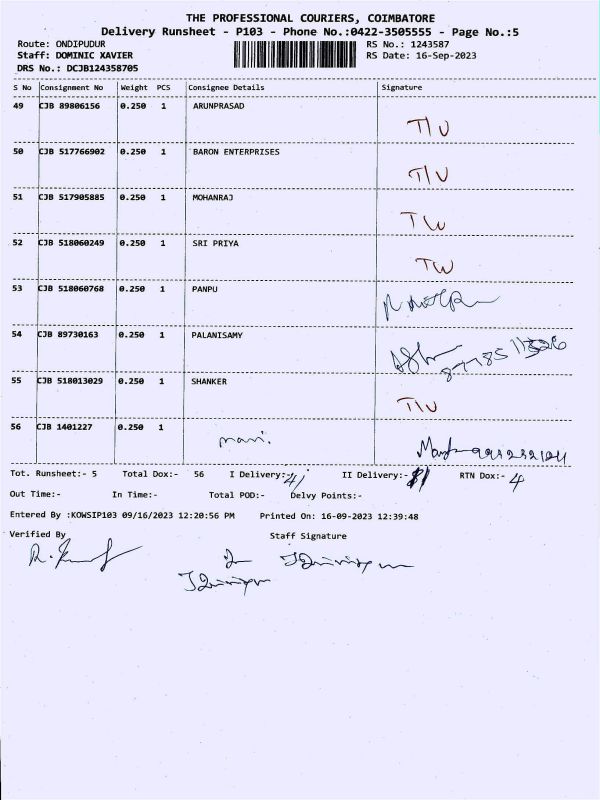 THE PROFESSIONAL COURIERS, COIMBATORE
Delivery Runsheet - P103 - Phone No.:0422-3505555 - Page No.:5
Route: ONDIPUDUR RS No.: 1243587
Staff: DOMINIC XAVIER RS Date: 16-Sep-2023
DRS No.: DCJB124358705
S No Consignment No Weight PCS Consignee Details Signature
49 CJB 89806156 0.250 1 ARUNPRASAD
50 CJB 517766902 0.250 1 BARON ENTERPRISES
51 CJB 517905885 0.250 1 MOHANRAJ
52 CJB 518060249 0.250 1 SRI PRIYA
53 CJB 518060768 0.250 1 PANPU
54 CJB 89730163 0.250 1 PALANISAMY
55 CJB 518013029 0.250 1 SHANKER
56 CJB 1401227 0.250 1 mani.
Tot. Runsheet:- 5 Total Dox:- 56 I Delivery:- 41 II Delivery:- RTN Dox:- 4
Out Time:- In Time:- Total POD:- Delvy Points:-
Entered By :KOWSIP103 09/16/2023 12:20:56 PM Printed On: 16-09-2023 12:39:48
Verified By Staff Signature